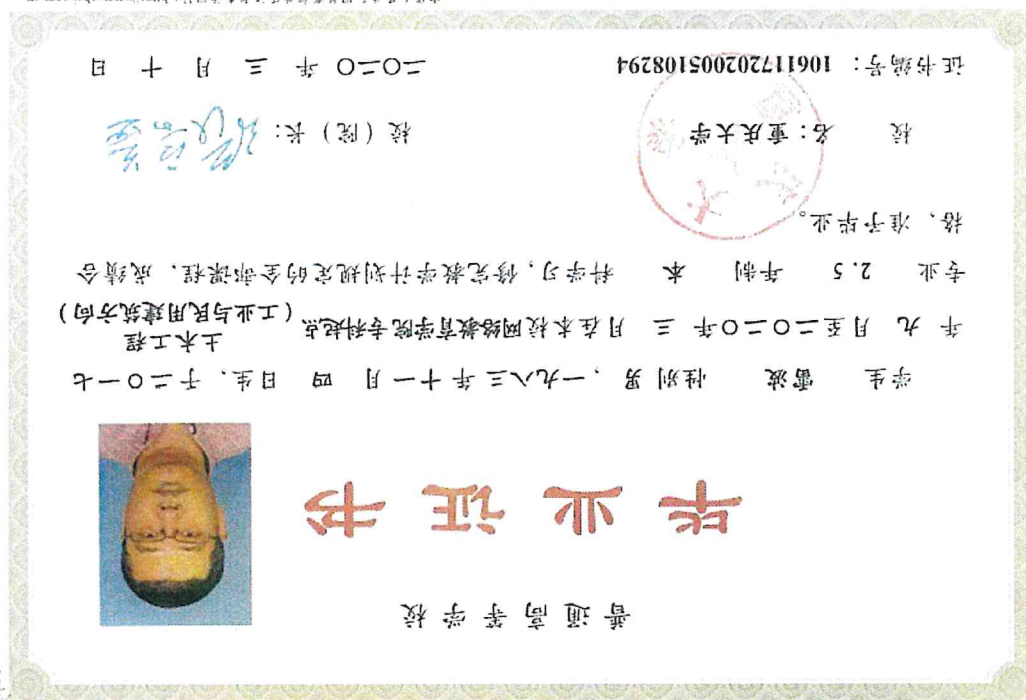 普通高等学校
毕业证书
学生 雷波 性别 男 ,一九八三年十一月 四 日生,于二〇一七
年 九 月至二〇二〇年 三 月在本校网络教育学院专科起点 土木工程
(工业与民用建筑方向)
专业 2.5 年制 本 科学习,修完教学计划规定的全部课程,成绩合
格,准予毕业。
校 名:重庆大学 校(院)长:
证书编号:106117202005108294 二〇二〇年 三 月 十 日